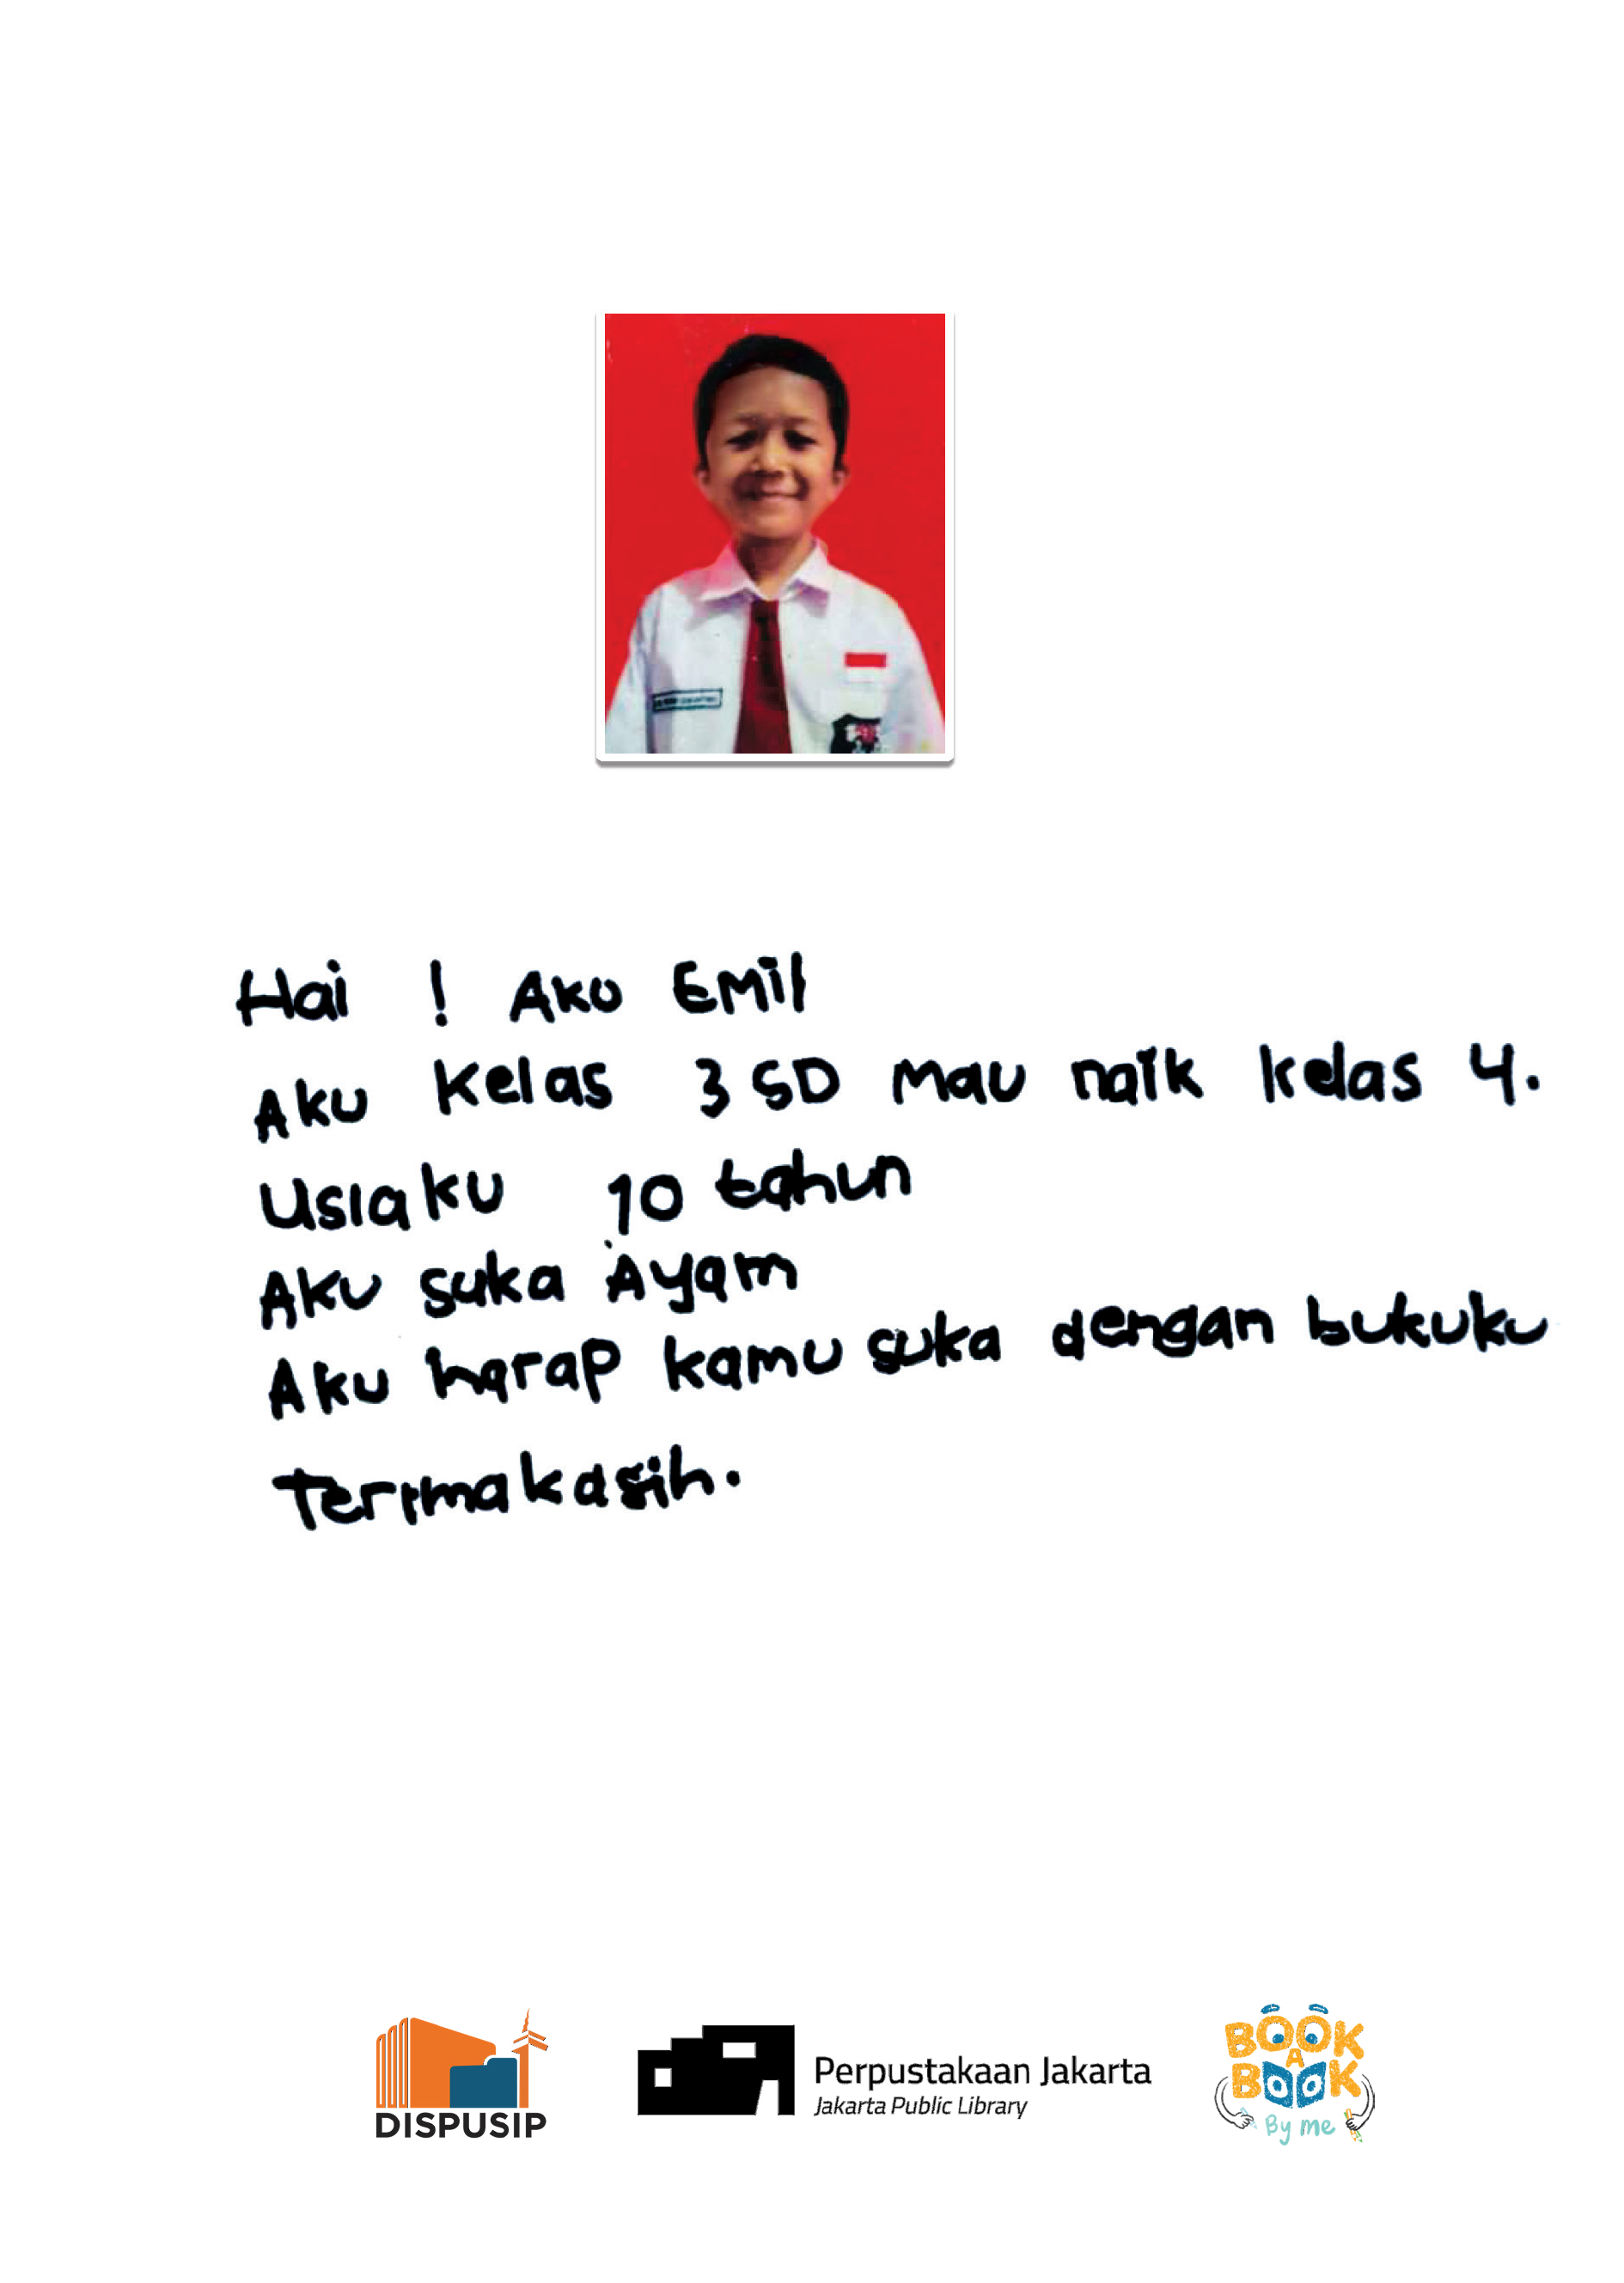 Hai ! Aku Emil
Aku Kelas 3 SD Mau naik kelas 4.
Usiaku 10 tahun
Aku suka Ayam
Aku harap kamu suka dengan bukuku
Terimakasih.
DISPUSIP
Perpustakaan Jakarta
Jakarta Public Library
BOOK
A
BOOK
By me